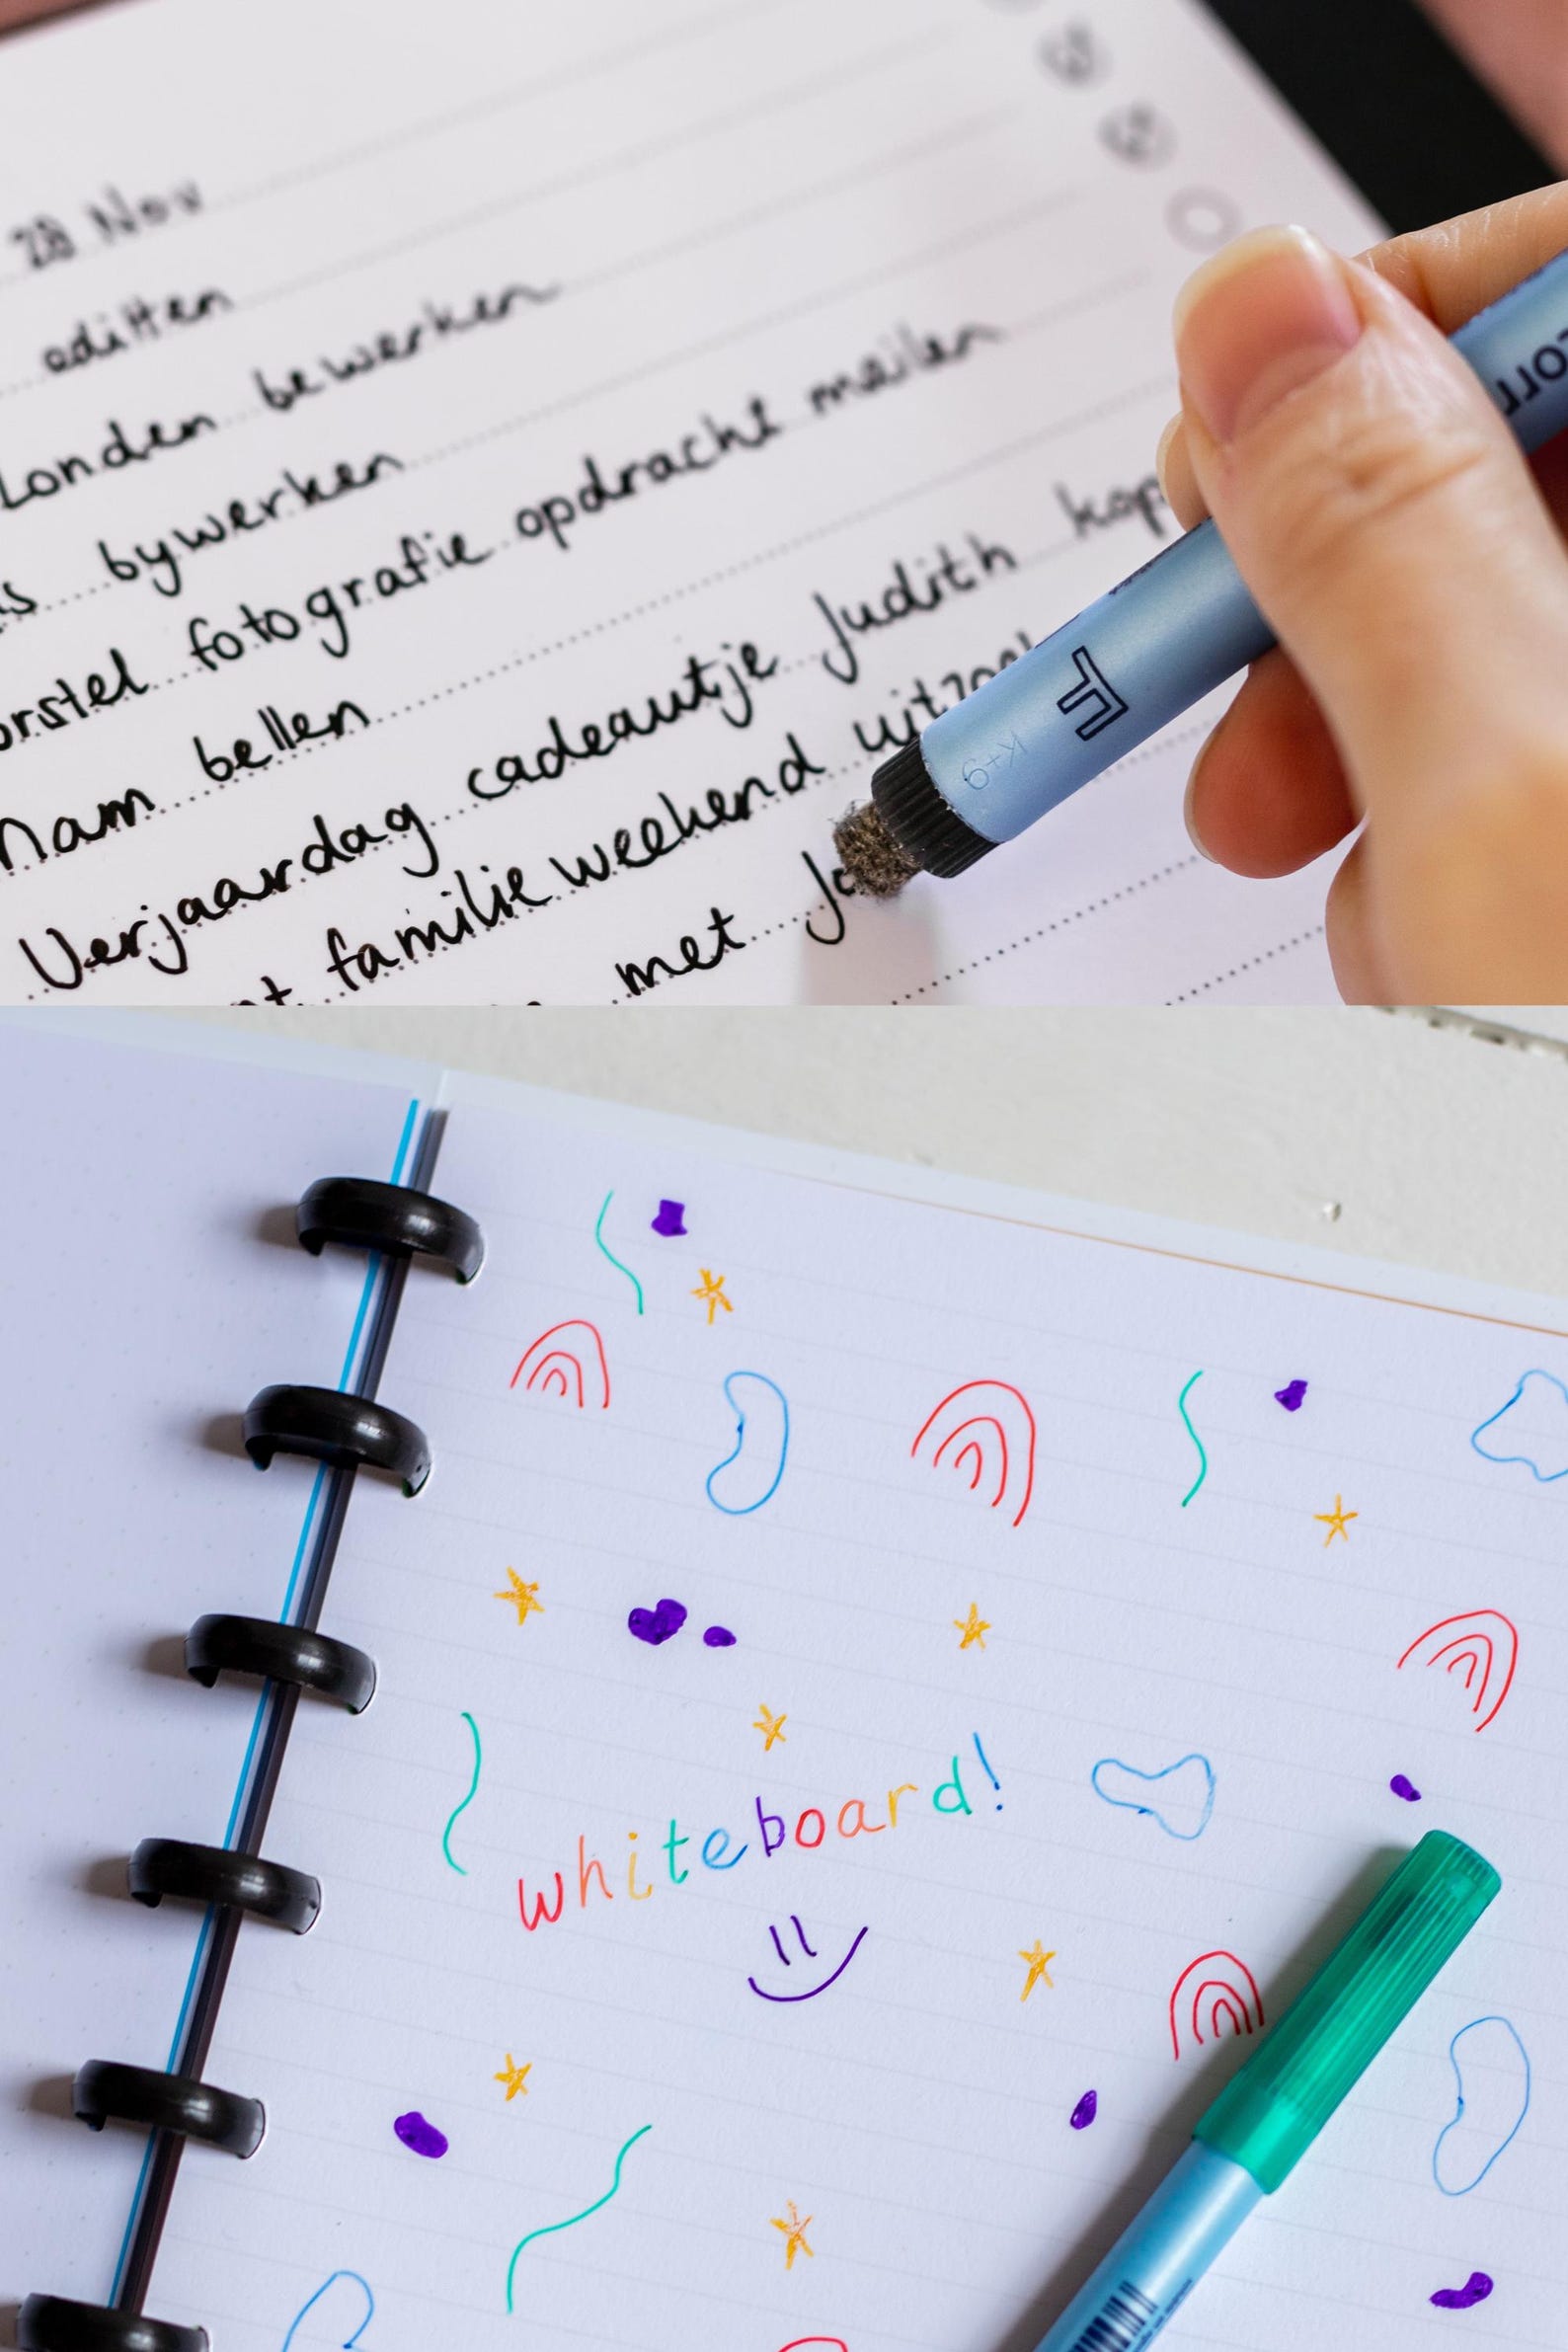 28 Nov
editten
Londen bewerken
bywerken
fotografie opdracht mailen
bellen
Verjaardag cadeautje Judith
familie weekend
met
whiteboard!